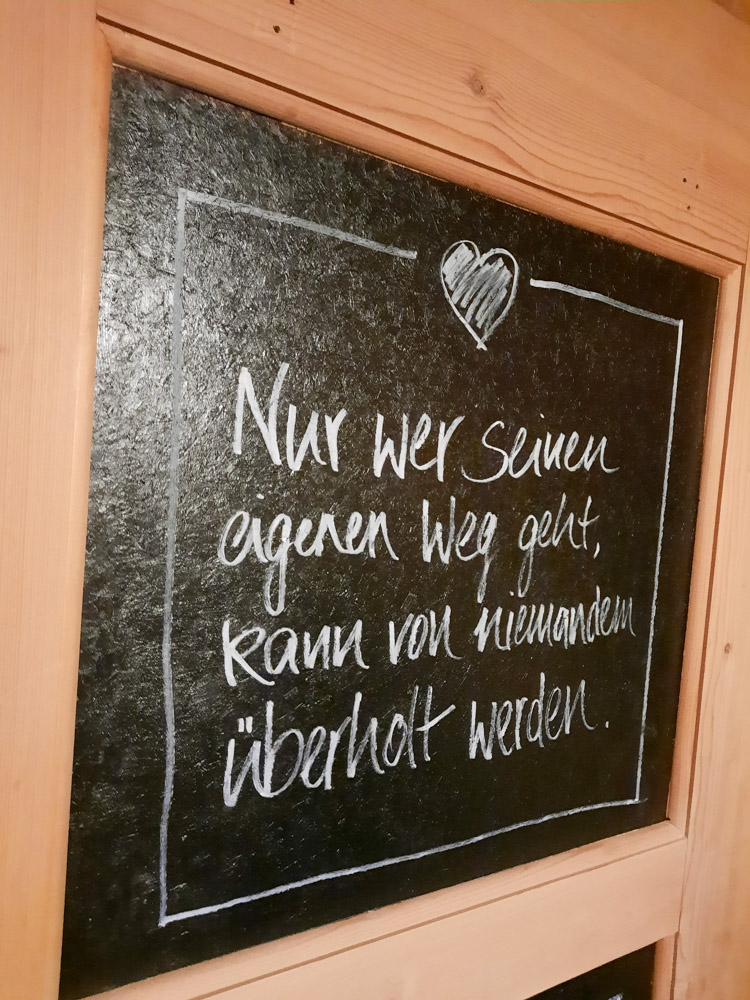 Nur wer seinen
eigenen Weg geht,
kann von niemandem
überholt werden.